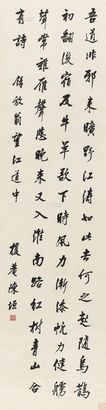 吾道非邪來曠野江濤如此去何之起隨烏鵲
初翻後宿及牛羊欲下時風力漸添帆力健艣
聲常雜雁聲悲晚來又入淮南路紅樹青山合
有詩 錄放翁望江道中
援菴陳垣